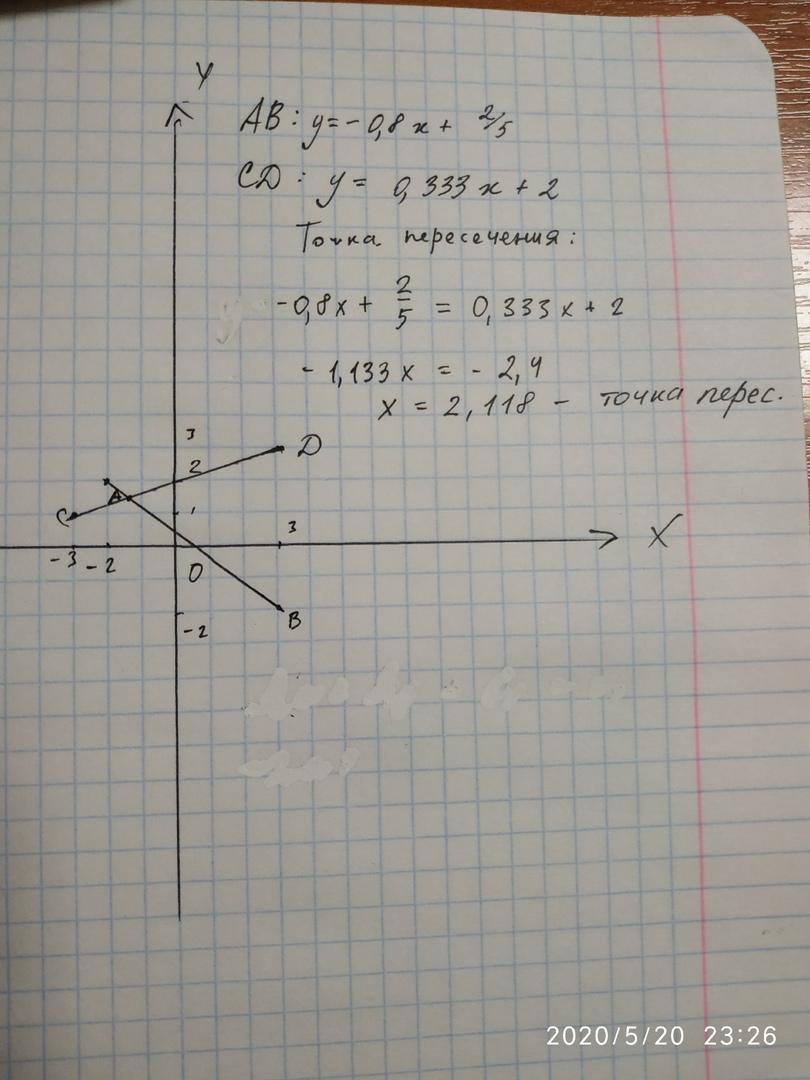 Y
AB: y = - 0,8x + 2/5
CD: y = 0,333x + 2
Точка пересечения:
-0,8x + 2/5 = 0,333x + 2
- 1,133x = - 2,4
x = 2,118 - точка перес.
3
D
2
A
C
1
3
X
-3 -2
0
B
-2
2020/5/20 23:26